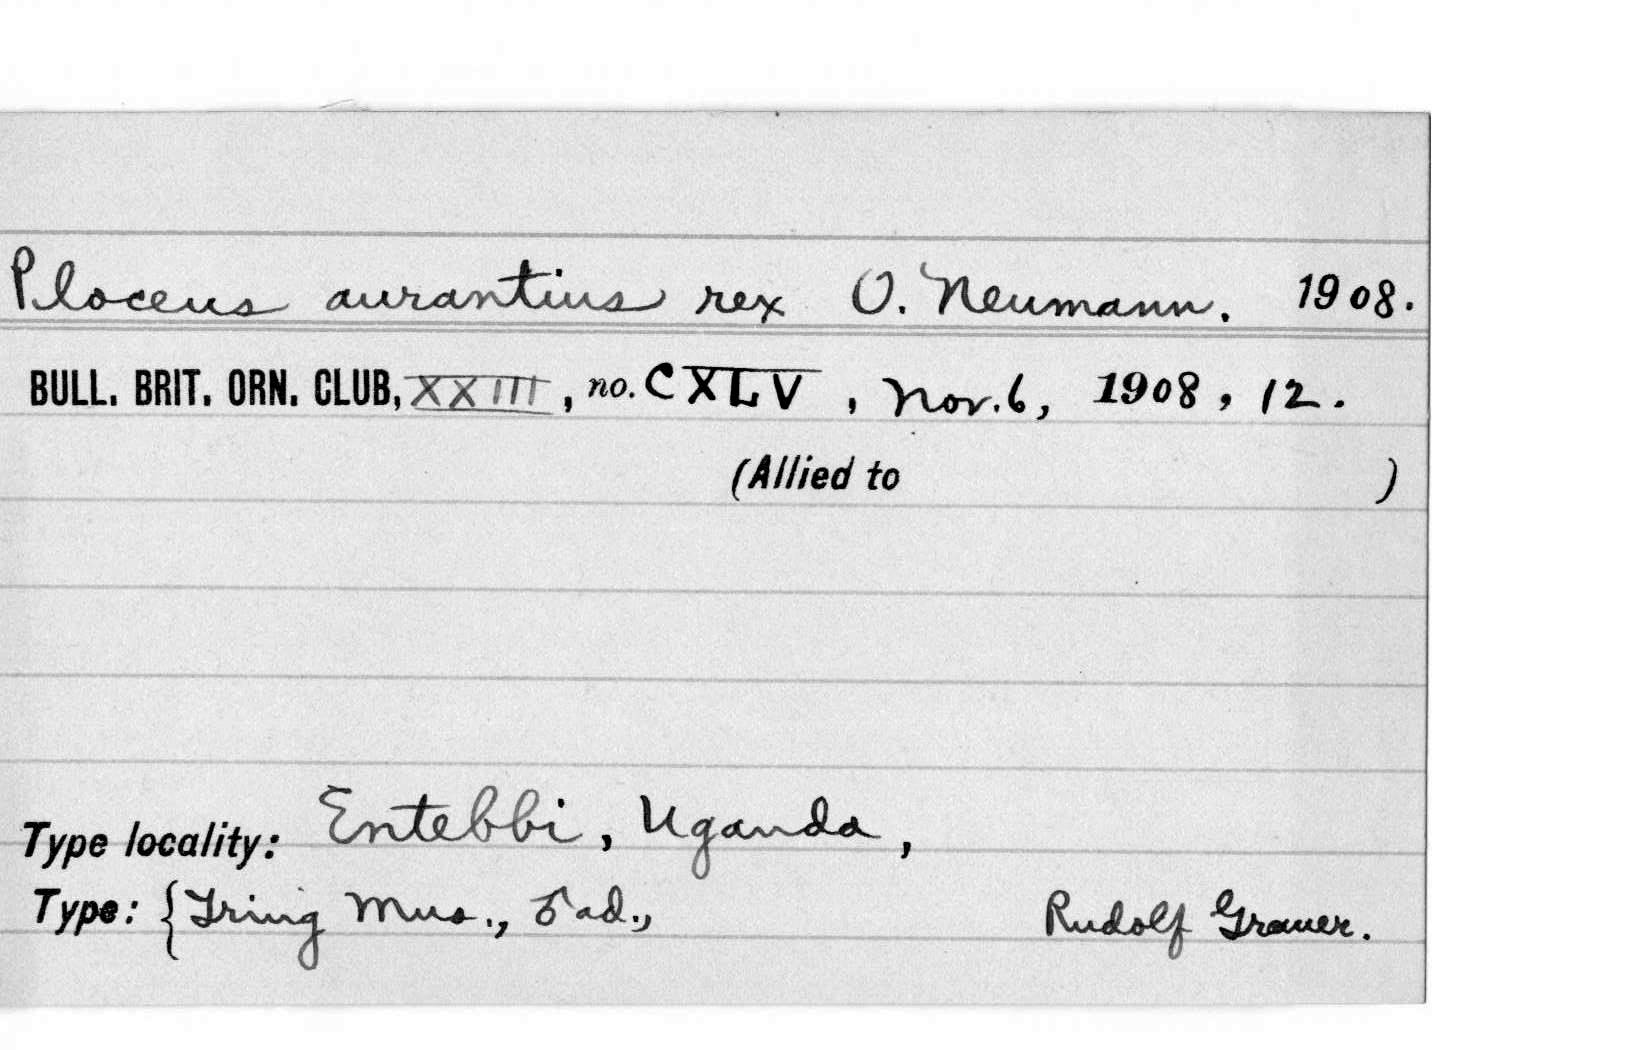 Ploceus aurantius rex O. Neumann. 1908.
BULL. BRIT. ORN. CLUB, XXIII, no. CXLV, Nov. 6, 1908, 12.
(Allied to )
Type locality: Entebbi, Uganda,
Type: {Tring Mus., ♂ ad., Rudolf Grauer.